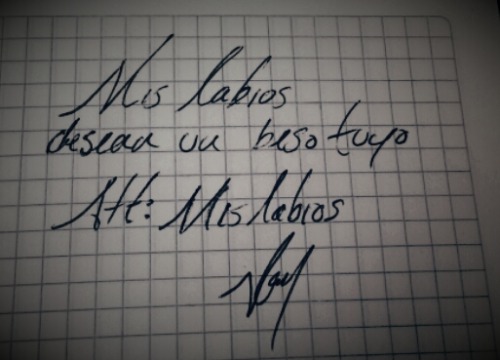 Mis labios
desean un beso tuyo
Att: Mis labios